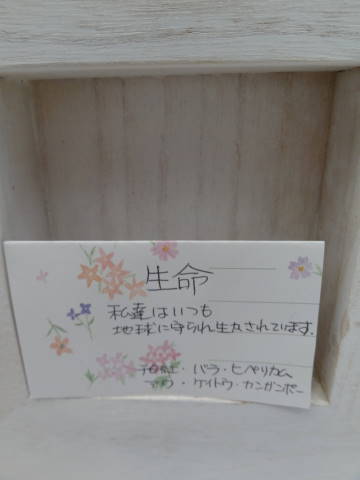 生命
私達はいつも
地球に守られ生かされています。
・バラ・ヒペリカム
・ケイトウ・カンガンポー